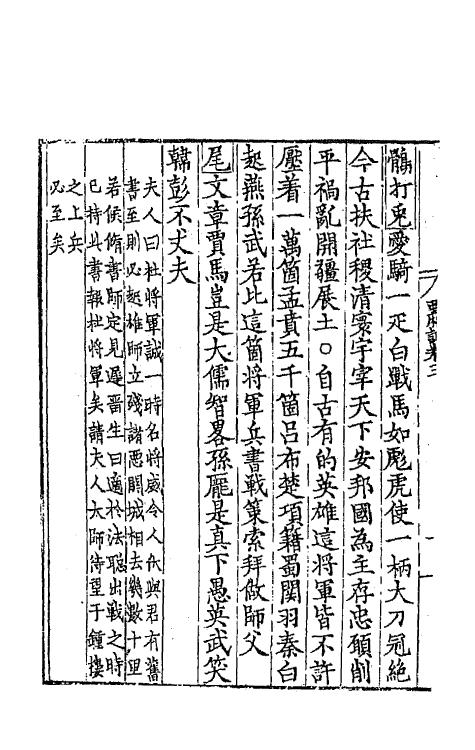 鶻打兎愛騎一疋白戰馬如彪虎使一柄大刀冠絶
今古扶社稷清寰宇宰天下安邦國為主存忠願削
平禍亂開疆展土○自古有的英雄這將軍皆不許
壓着一萬箇孟賁五千箇呂布楚項籍蜀関羽秦白
起燕孫武若比這箇將軍兵書戰策索拜做師父
尾文章賈馬豈是大儒智畧孫龐是真下愚英武笑
韓彭不丈夫
夫人曰杜將軍誠一時名將威令人伏與君有舊
書至則必起雄師立殘諸惡關城相去幾數十里
若候脩書師定見遲晋生曰適於法聰出戰之時
已持此書報杜將軍矣請夫人大師待望于鐘樓
之上兵
必至矣
西厢記卷三